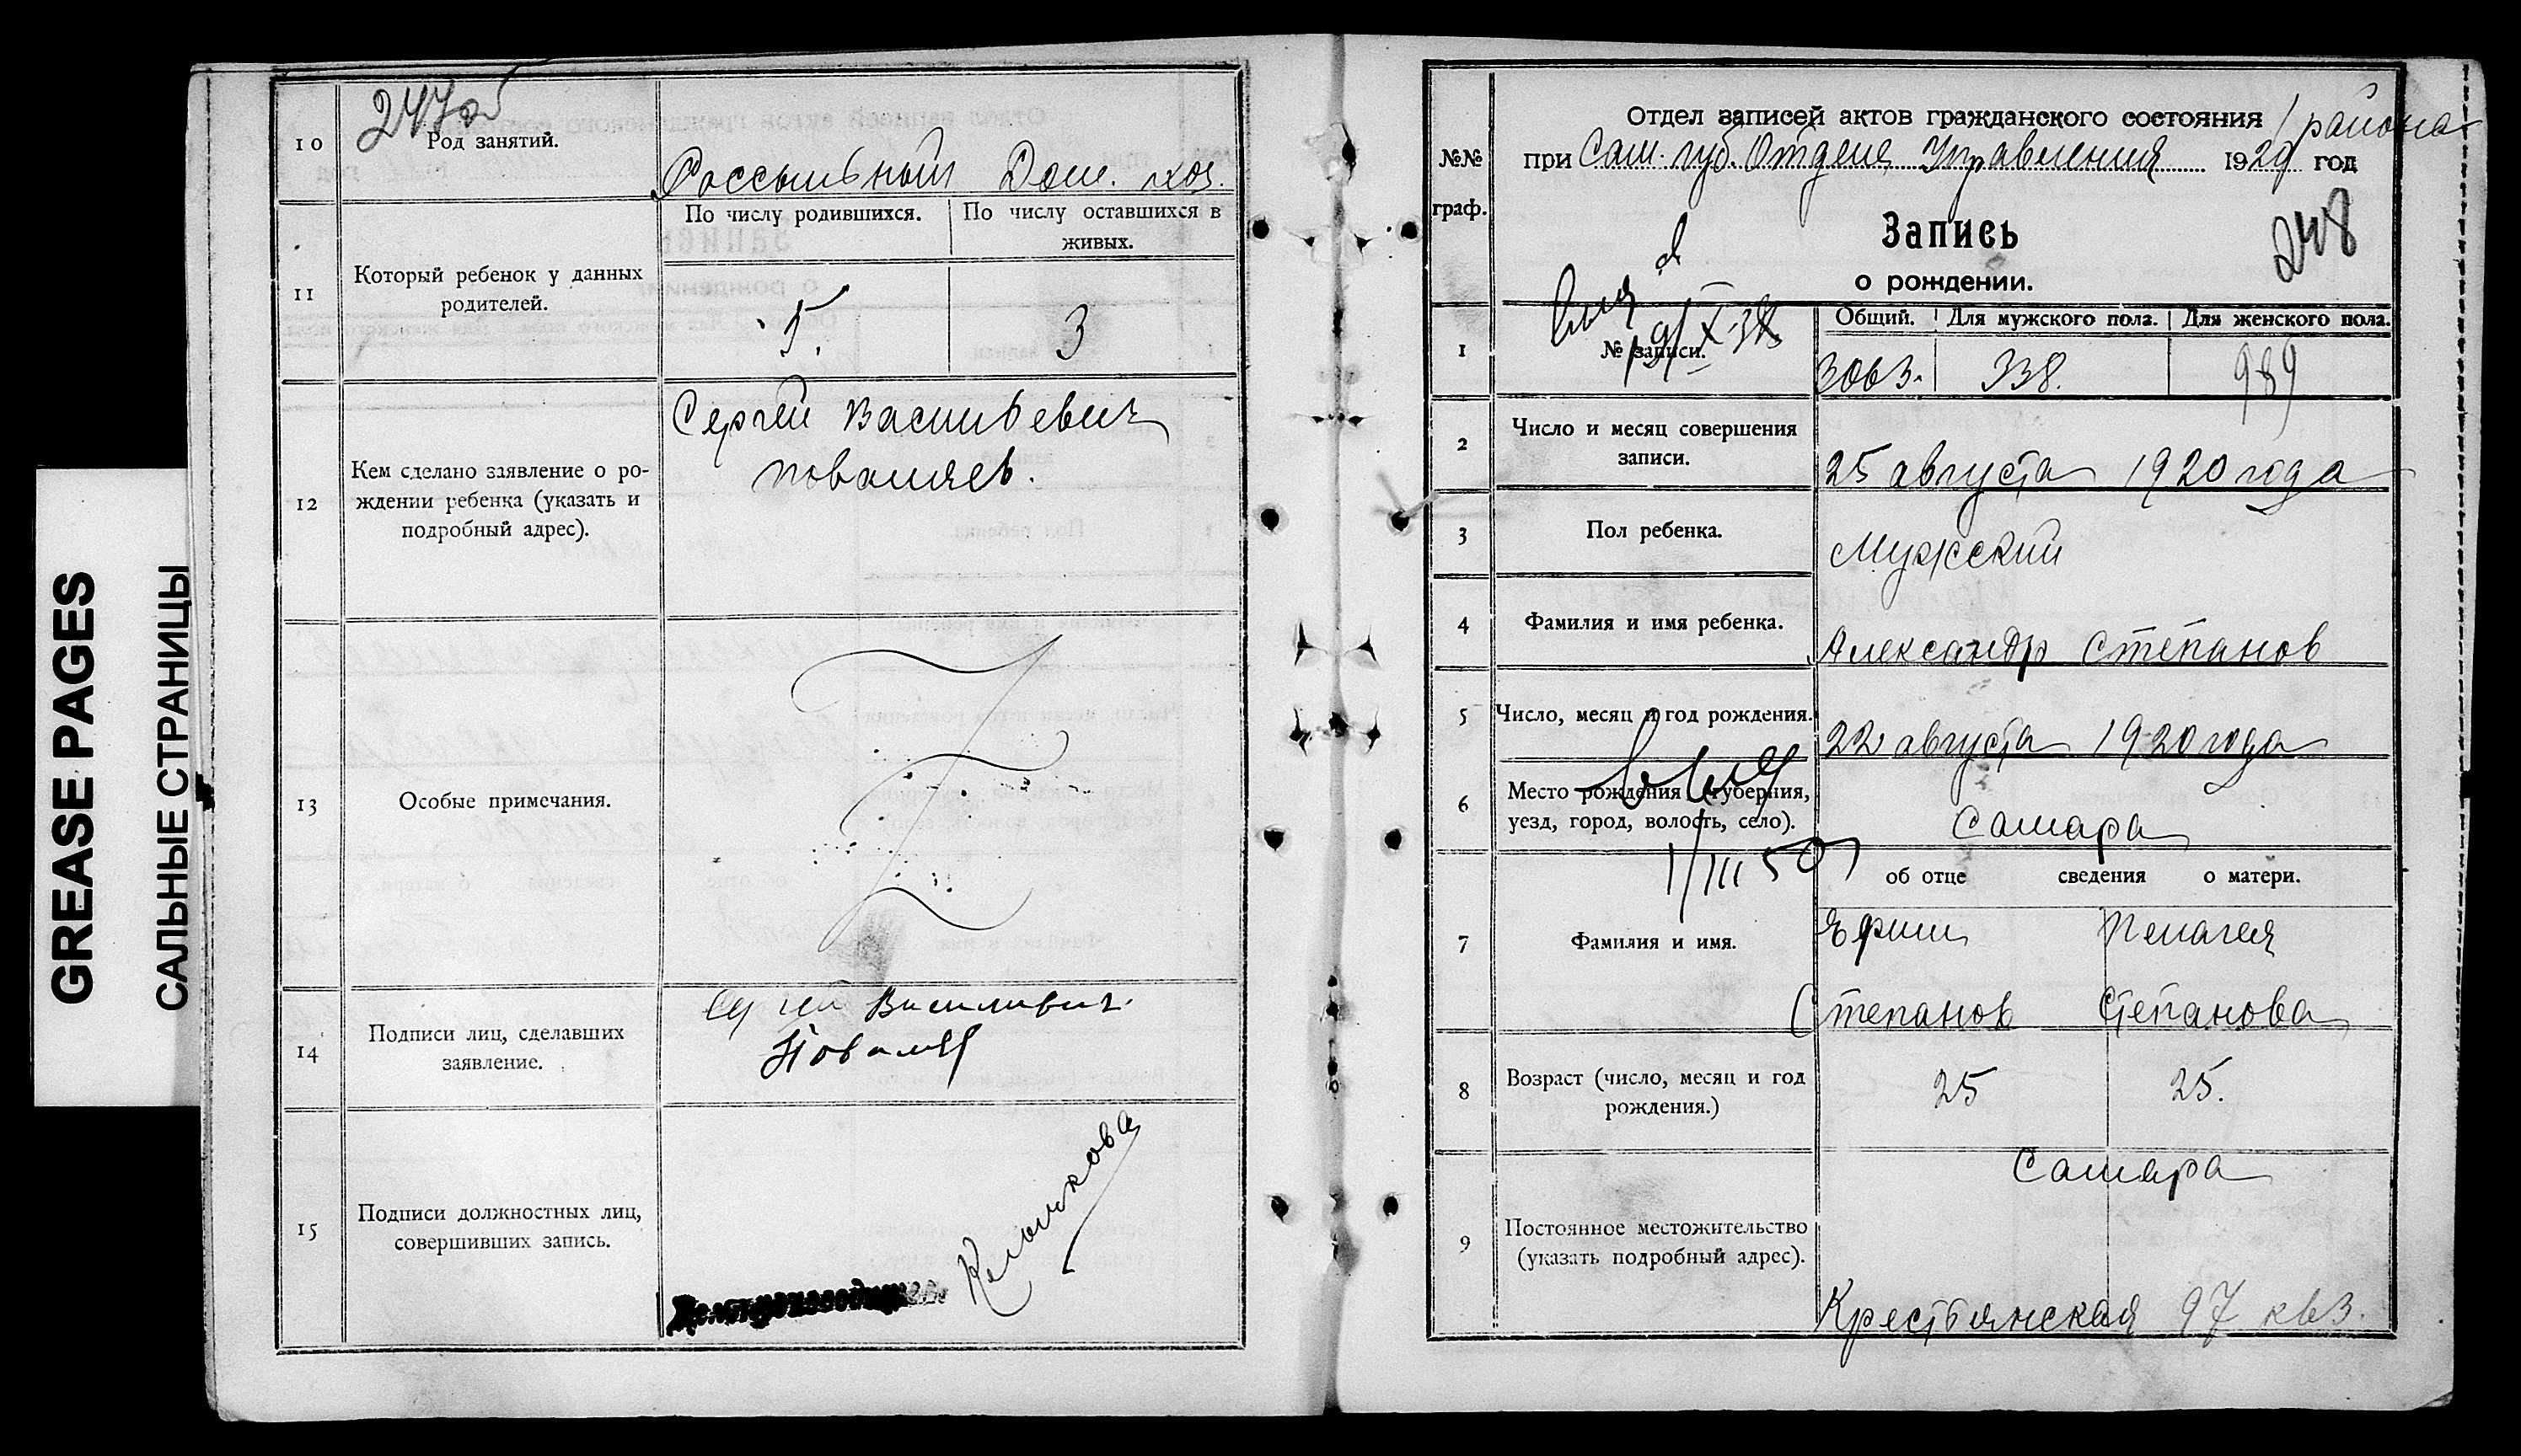 GREASE PAGES
САЛЬНЫЕ СТРАНИЦЫ
247об
10 Род занятий. Рассыльный Дом. хоз.
11 Который ребенок у данных родителей.
По числу родившихся. По числу оставшихся в живых.
5. 3
12 Кем сделано заявление о рождении ребенка (указать и подробный адрес).
Сергей Васильевич
Поваляев.
13 Особые примечания.
14 Подписи лиц, сделавших заявление.
15 Подписи должностных лиц, совершивших запись.
№№ граф.
Отдел записей актов гражданского состояния 1 района
при Сам. губ. Отделе Управления 1920 год
248
Запись
о рождении.
1 № записи.
Общий. Для мужского пола. Для женского пола.
3063. 338. 989
2 Число и месяц совершения записи. 25 августа 1920 года
3 Пол ребенка. Мужской
4 Фамилия и имя ребенка. Александр Степанов
5 Число, месяц и год рождения. 22 августа 1920 года
6 Место рождения (губерния, уезд, город, волость, село). Самара
об отце сведения о матери.
7 Фамилия и имя. Ефим Пелагея
Степанов Степанова
8 Возраст (число, месяц и год рождения.) 25 25.
9 Постоянное местожительство (указать подробный адрес).
Самара
Крестьянская 97 кв 3.